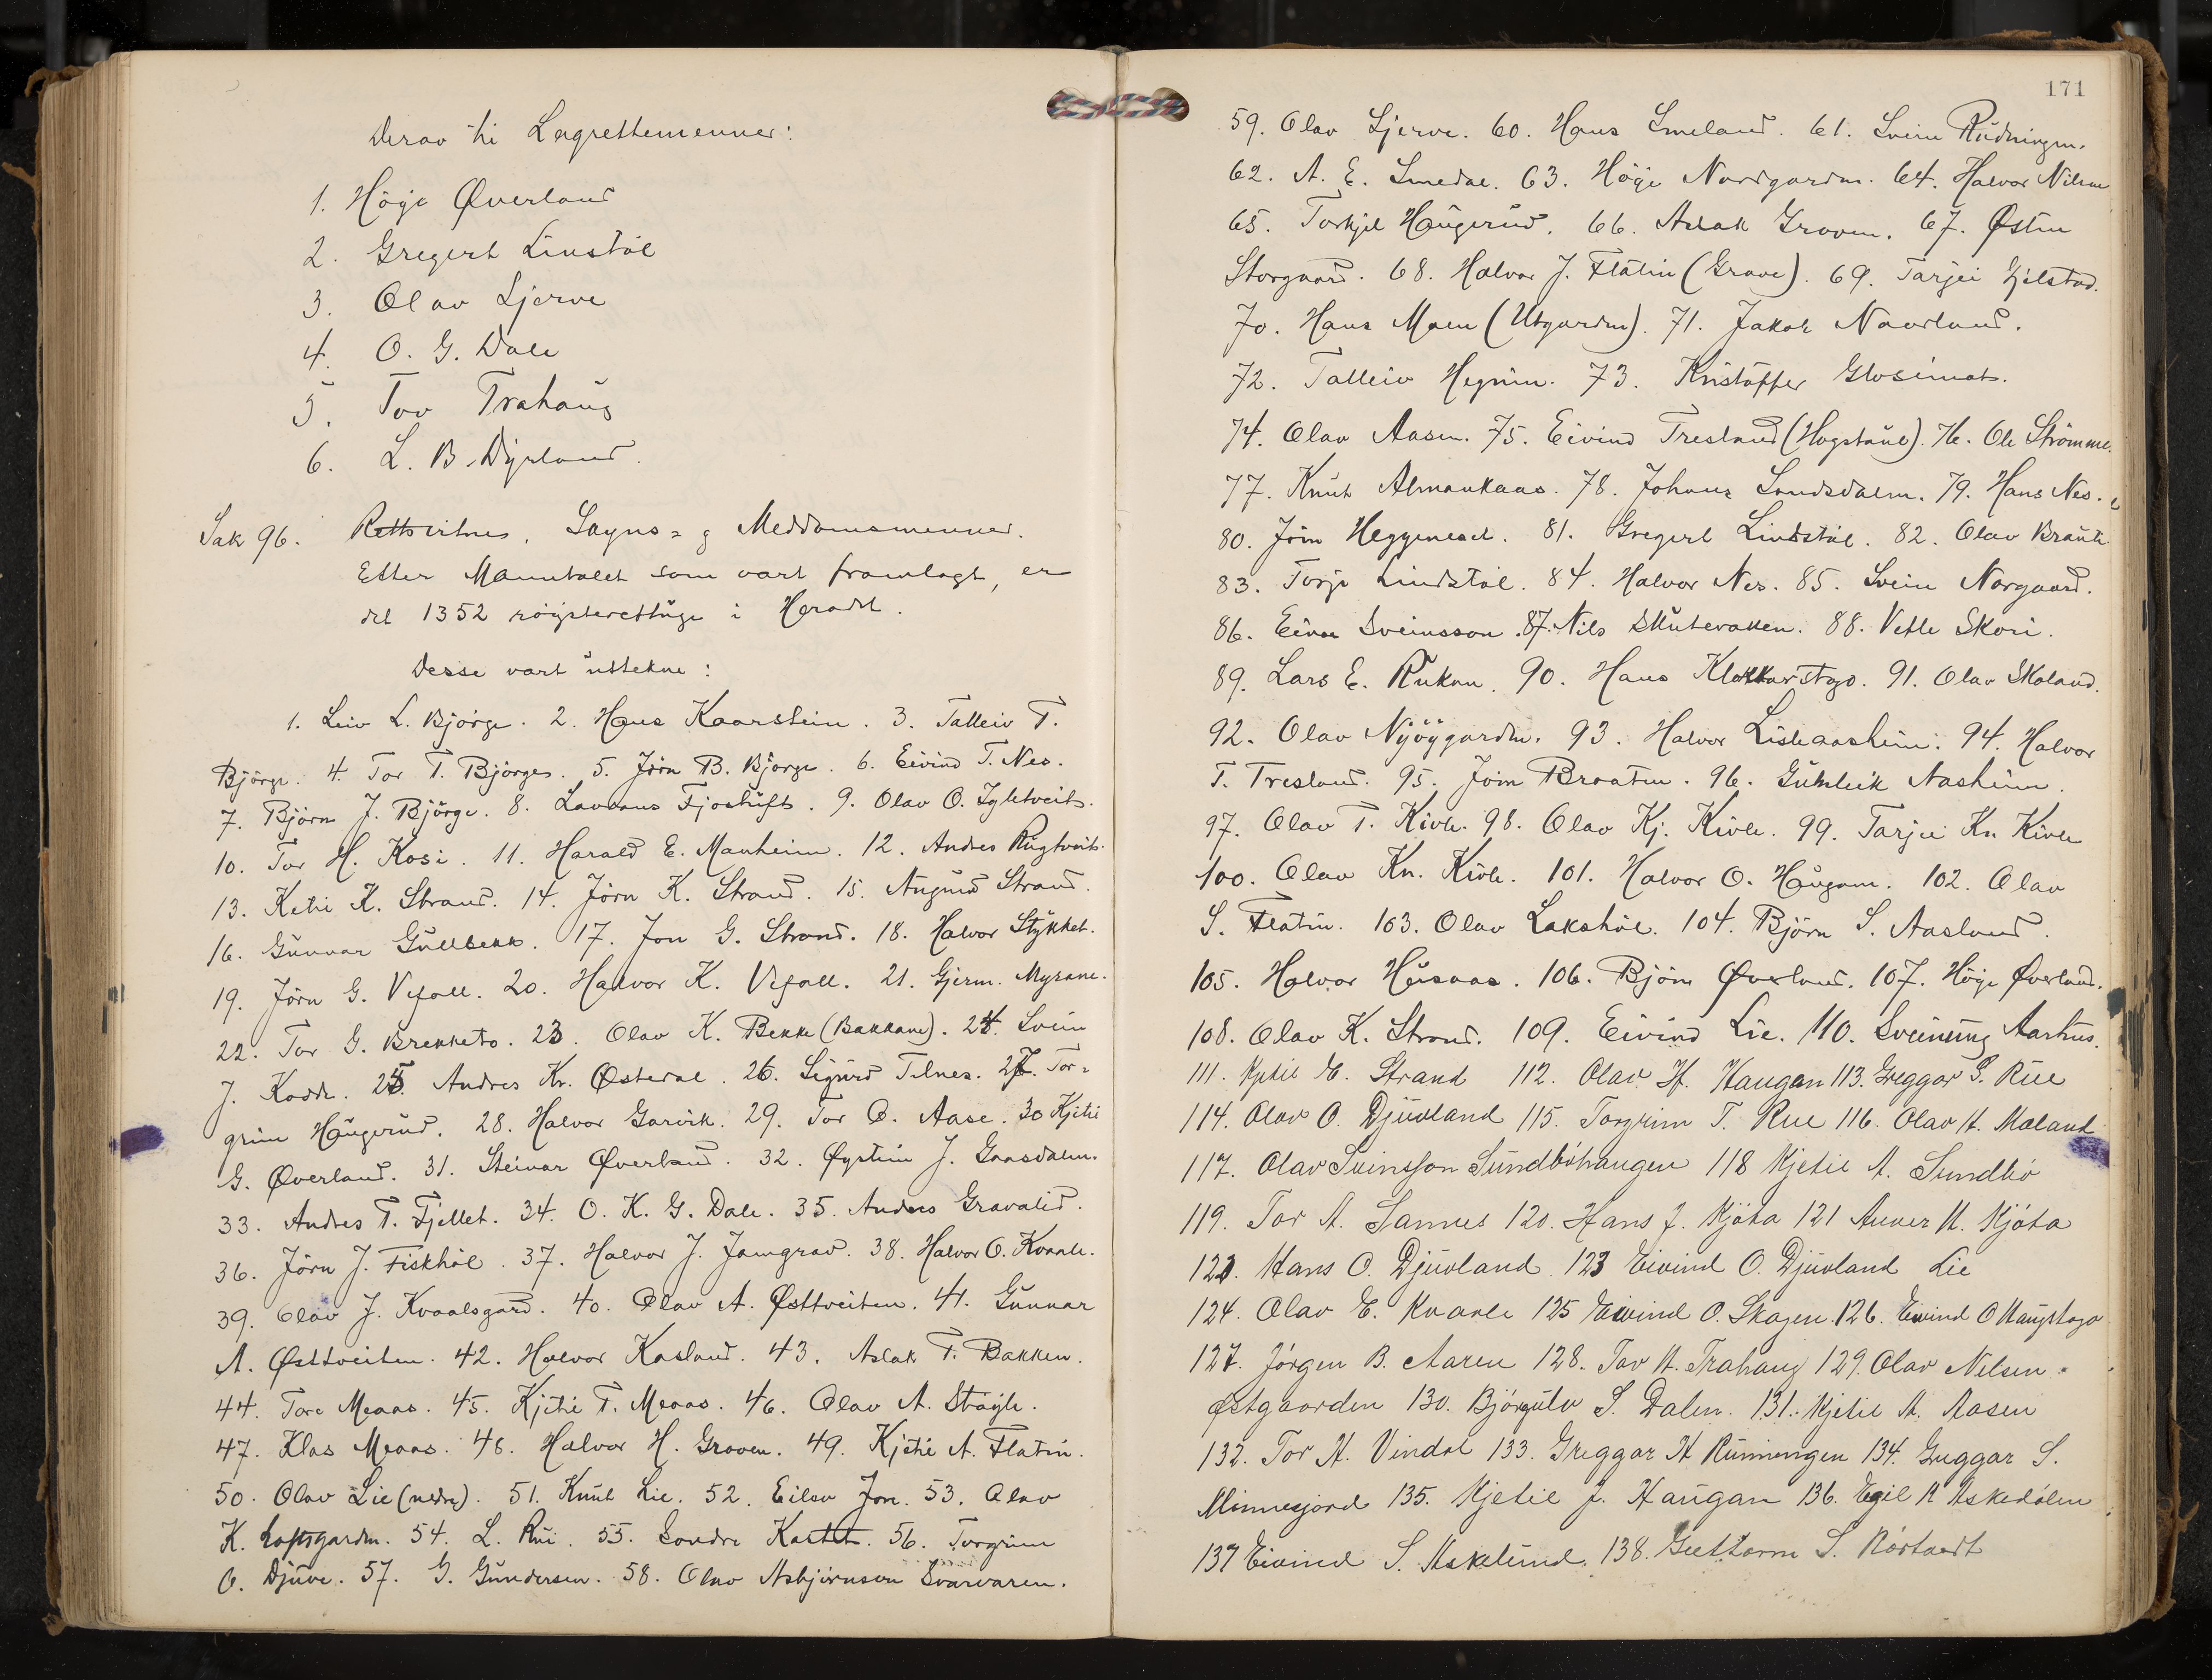 Derav ti Lagrettemenner:
1. Höge Øverland
2. Gregert Linstöl
3. Olav Ljerve
4. O. G. Dale
5. Tov Trahaug
6. L. B. Dyrland.
Sak 96. Rettsvitnes, Skyns- og Meddomsmenner.
Etter Manntalet som vart framlagt, er
det 1352 röysterettuge i Heradet.
Desse vart uttekne:
1. Leiv L. Björge. 2. Hans Kaarstein. 3. Talleiv T.
Björge. 4. Tor T. Björges. 5. Jörn B. Björge. 6. Eivind T. Nes.
7. Björn J. Björge. 8. Lavrans Fjostuft. 9. Olav O. Igletveit.
10. Tor H. Kosi. 11. Harald E. Manheim. 12. Andres Rugtveit.
13. Ketil K. Strand. 14. Jörn K. Strand. 15. Augund Strand.
16. Gunnar Gullbekk. 17. Jon G. Strand. 18. Halvor Stykket.
19. Jörn G. Vefall. 20. Halvor K. Vefall. 21. Gjerm. Myrane.
22. Tor G. Brekketo. 23. Olav K. Bekk (Bakkane). 24. Svein
J. Kaase. 25. Andres Kr. Østerdal. 26. Sigurd Telnes. 27. Tor-
grim Haugerud. 28. Halvor Garvik. 29. Tor O. Aase. 30 Kjetil
G. Øverland. 31. Steinar Øverland. 32. Øystein J. Gaasdalen.
33. Andres T. Fjellet. 34. O. K. G. Dale. 35. Andres Gravalid.
36. Jörn J. Fiskhöl. 37. Halvor J. Jamgrav. 38. Halvor O. Kvaale.
39. Olav J. Kvaalsgard. 40. Olav A. Østtveiten. 41. Gunnar
A. Østtveiten. 42. Halvor Kasland. 43. Aslak T. Bakken.
44. Tore Meaas. 45. Kjetil T. Meaas. 46. Olav A. Ståyle.
47. Klas Meaas. 48. Halvor H. Groven. 49. Kjetil A. Flatin.
50. Olav Lie (nedre). 51. Knut Lie. 52. Eilev Jore. 53. Olav
K. Loftsgarden. 54. L. Rui. 55. Sondre Kastet. 56. Torgrim
O. Djuve. 57. G. Gundersen. 58. Olav Asbjørnsen Svarvaren.
171
59. Olav Ljerve. 60. Hans Smeland. 61. Svein Rudningen.
62. A. E. Smedal. 63. Höge Nordgarden. 64. Halvor Nilsen
65. Torkjel Haugerud. 66. Aslak Groven. 67. Østen
Storgaard. 68. Halvor J. Flatin (Grave). 69. Tarjei Gjelstad.
70. Hans Moen (Utgarden). 71. Jakob Naurland.
72. Talleiv Hegnin. 73. Kristoffer Glosimot.
74. Olav Aasen. 75. Eivind Tresland (Hogstaul). 76. Ole Strömme.
77. Knut Almankaas. 78. Johans Sandsdalen. 79. Hans Nes.
80. Jörn Heggeneset. 81. Gregert Lindstöl. 82. Olav Braute
83. Torje Lindstöl. 84. Halvor Nes. 85. Svein Norgaard.
86. Einar Sveinsson. 87. Nils Skutevakken. 88. Vetle Skori.
89. Lars E. Rukon. 90. Hans Klokkarstogo. 91. Olav Skoland.
92. Olav Nyöygarden. 93. Halvor Lislaasheim. 94. Halvor
T. Tresland. 95. Jörn Braaten. 96. Gunleik Aasheim.
97. Olav T. Kivle. 98. Olav Kj. Kivle. 99. Tarjei Kn. Kivle
100. Olav Kn. Kivle. 101. Halvor O. Haugan. 102. Olav
S. Flatin. 103. Olav Lakshöl. 104. Björn S. Aasland.
105. Halvor Husaas. 106. Björn Øverland. 107. Höge Øverland.
108. Olav K. Strand. 109. Eivind Lie. 110. Sveinung Aarhus.
111. Kjetil E. Strand 112. Olav H. Haugan 113. Greggar S. Rue
114. Olav O. Djuvland 115. Torgrim T. Rue 116. Olav H. Mæland
117. Olav Svinsson Sundböhaugen 118 Kjetil A. Sundbö
119. Tor A. Sannes 120. Hans J. Kjöta 121 Anver H. Kjöta
122. Hans O. Djuvland. 123 Eivind O. Djuvland Lie
124. Olav E. Kvaale 125 Eivind O. Skogen. 126. Eivind O Haugstogo
127. Jörgen B. Aaren 128. Tov H. Trahaug 129. Olav Nelsen
Østgaarden 130. Björgulv S. Dalen. 131. Kjetil A. Aasen
132. Tor H. Vindal 133. Greggar H Runningen 134. Greggar S.
Minnesjord 135. Kjetil J. Haugan 136. Egil R Askedalen
137 Eivind S. Askelund. 138. Guttorm S. Rörtveit